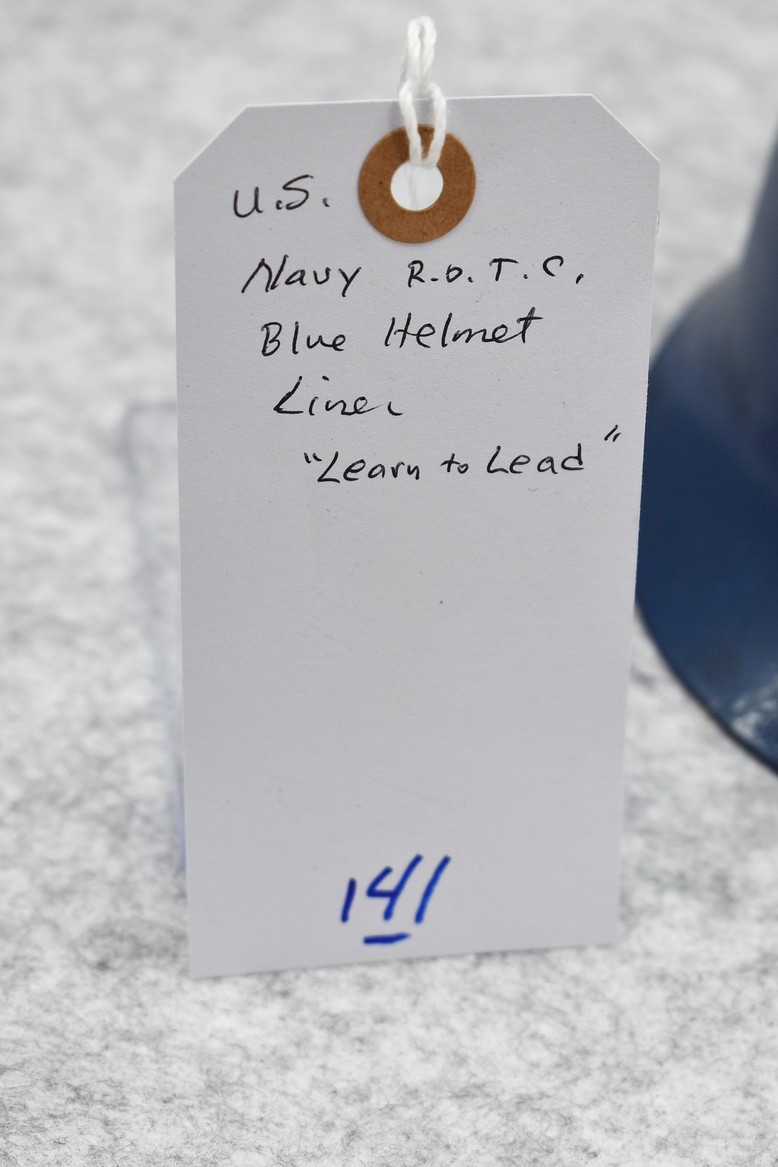 U.S.
Navy R.O.T.C.
Blue Helmet
Liner
"Learn to Lead"
141